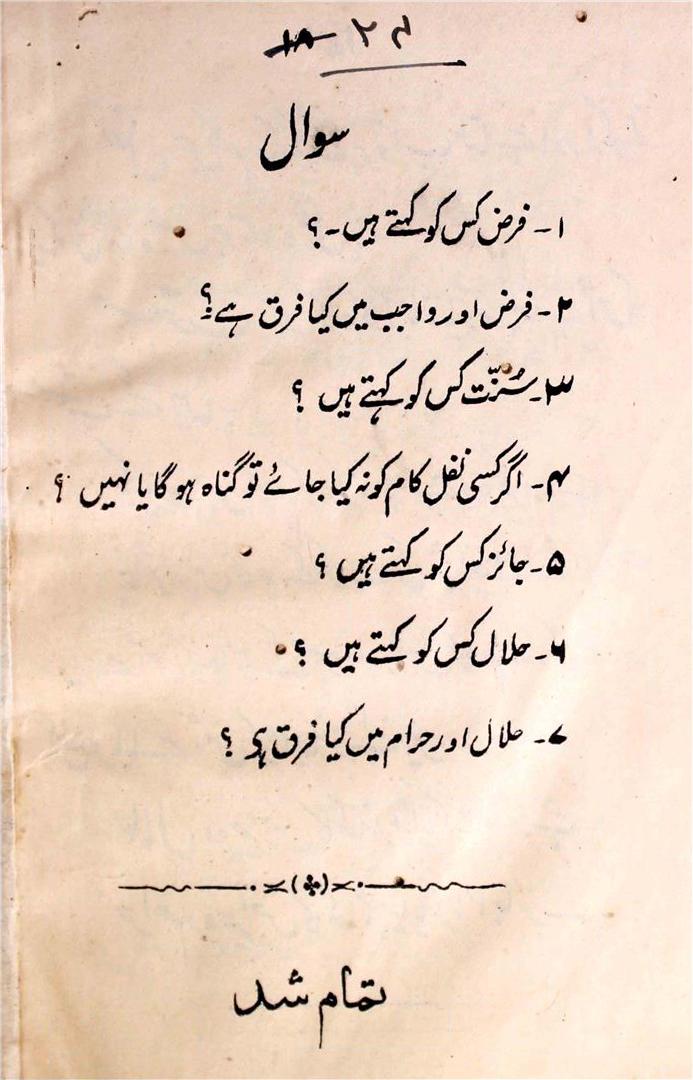 ۲۴ ۱۸
سوال
۱- فرض کس کو کہتے ہیں-؟
۲- فرض اور واجب میں کیا فرق ہے؟
۳- سُنّت کس کو کہتے ہیں ؟
۴- اگر کسی نفل کام کو نہ کیا جائے تو گناہ ہو گا یا نہیں ؟
۵- جائز کس کو کہتے ہیں ؟
۶- حلال کس کو کہتے ہیں ؟
۷- حلال اور حرام میں کیا فرق ہی ؟
تمام شد